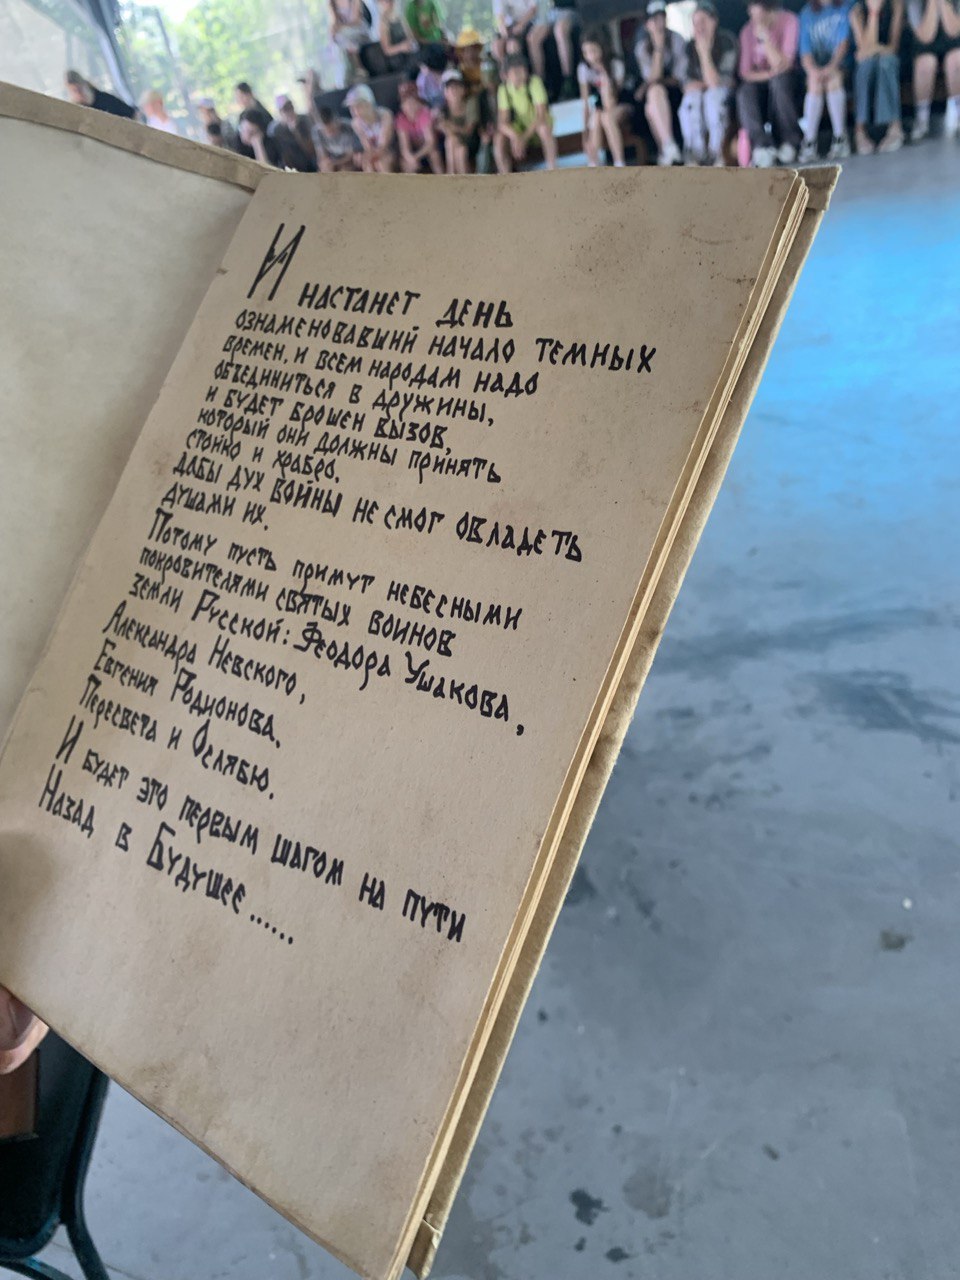 И настанет день
ознаменовавший начало темных
времен, и всем народам надо
объединиться в дружины,
и будет брошен вызов,
который они должны принять
стойко и храбро,
дабы дух войны не смог овладеть
душами их.
Потому пусть примут небесными
покровителями святых воинов
земли Русской: Феодора Ушакова,
Александра Невского,
Евгения Родионова,
Пересвета и Ослябю.
И будет это первым шагом на пути
Назад в Будущее......